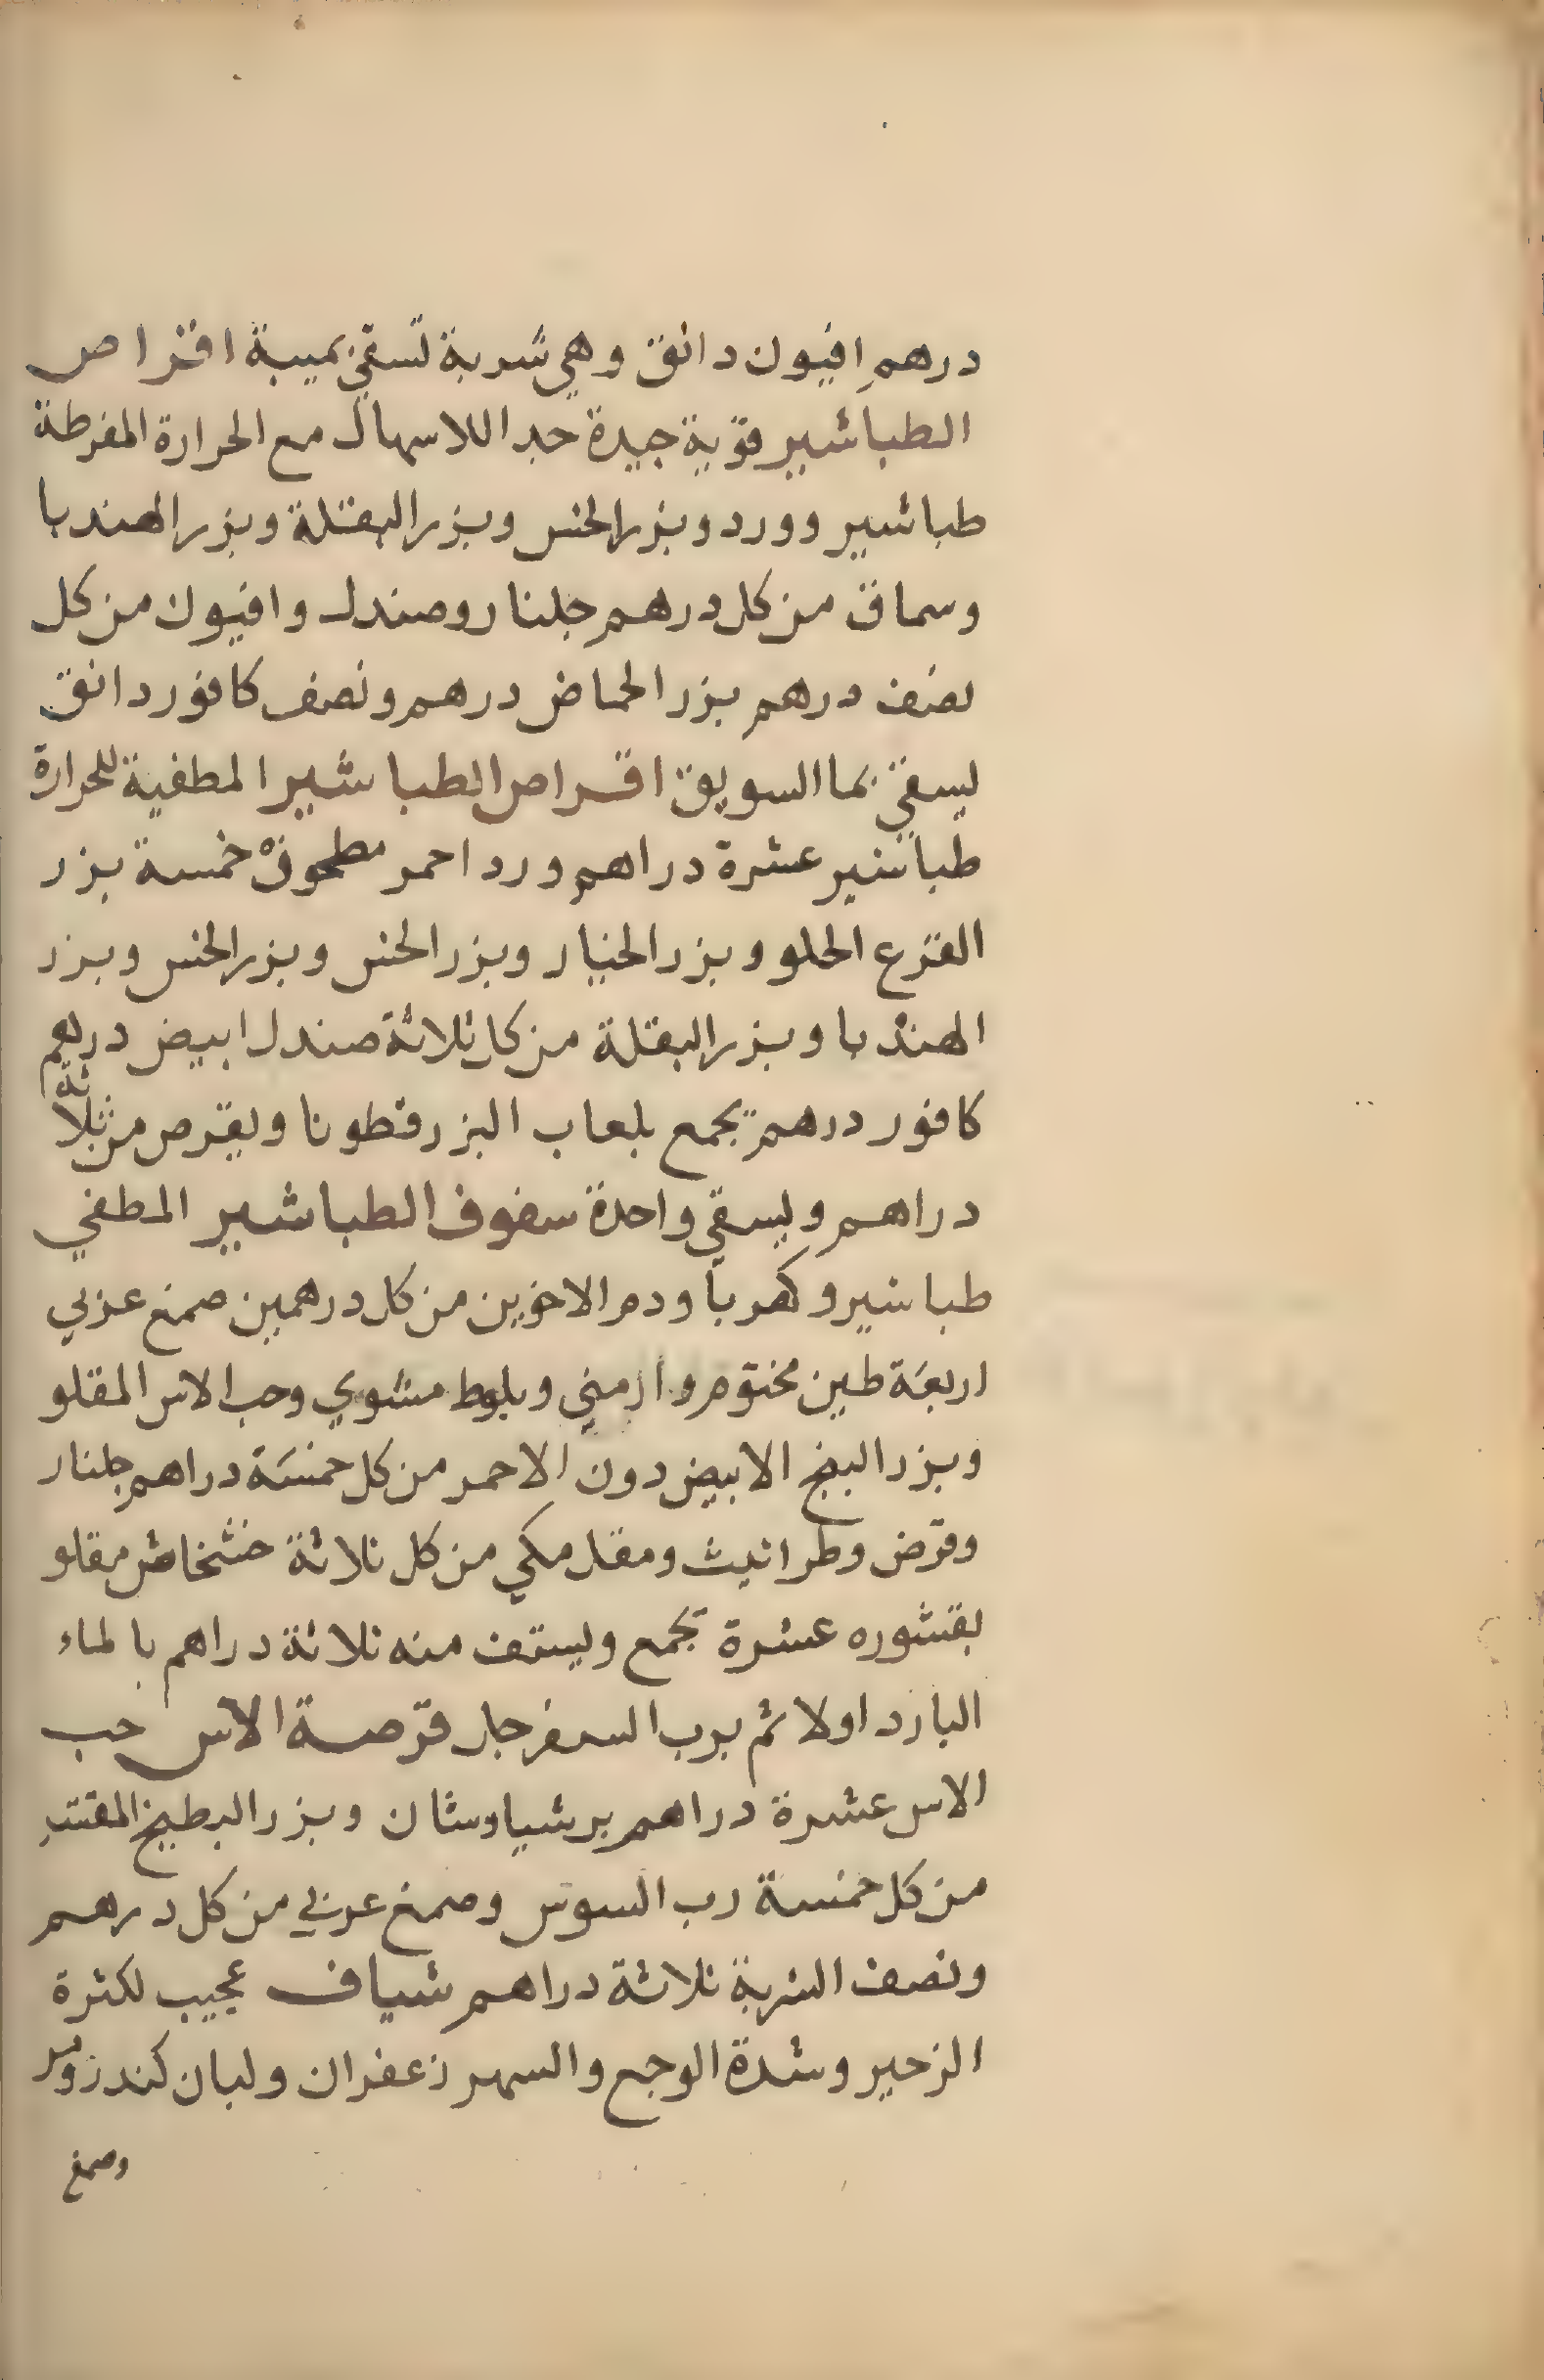 درهم افيون دانق وهي شربة تسقي بميبة اقراص
الطباشير قوية جيدة جدا للاسهال مع الحرارة المفرطة
طباشير وورد وبزر الخس وبزر البقلة وبزر الهندبا
وسماق من كل درهم جلنار وصندل وافيون من كل
نصف درهم بزر الحماض درهم ونصف كافور دانق
يسقي بما السويق اقراص الطباشير المطفية للحرارة
طباشير عشرة دراهم ورد احمر مطحون خمسة بزر
القرع الحلو وبزر الخيار وبزر الخس وبزر الخس وبزر
الهندبا وبزر البقلة من كل ثلاثة صندل ابيض درهم
كافور درهم يجمع بلعاب البزر قطونا ويقرص من ثلاثة
دراهم ويسقي واحدة سفوف الطباشير المطفي
طباشير وكهربا ودم الاخوين من كل درهمين صمغ عربي
اربعة طين مختوم وارميني وبلوط مشوي وحب الاس المقلو
وبزر البنج الابيض دون الاحمر من كل خمسة دراهم جلنار
وقرض وطراثيث ومقل مكي من كل ثلاثة خشخاش مقلو
بقشوره عشرة تجمع ويستف منه ثلاثة دراهم بالماء
البارد اولا ثم برب السفرجل قرصة الاس حب
الاس عشرة دراهم برشياوشان وبزر البطيخ المقشر
من كل خمسة رب السوس وصمغ عربي من كل درهم
ونصف الشربة ثلاثة دراهم شياف عجيب لكثرة
الزحير وشدة الوجع والسهر زعفران ولبان كندر ومر
وصمغ